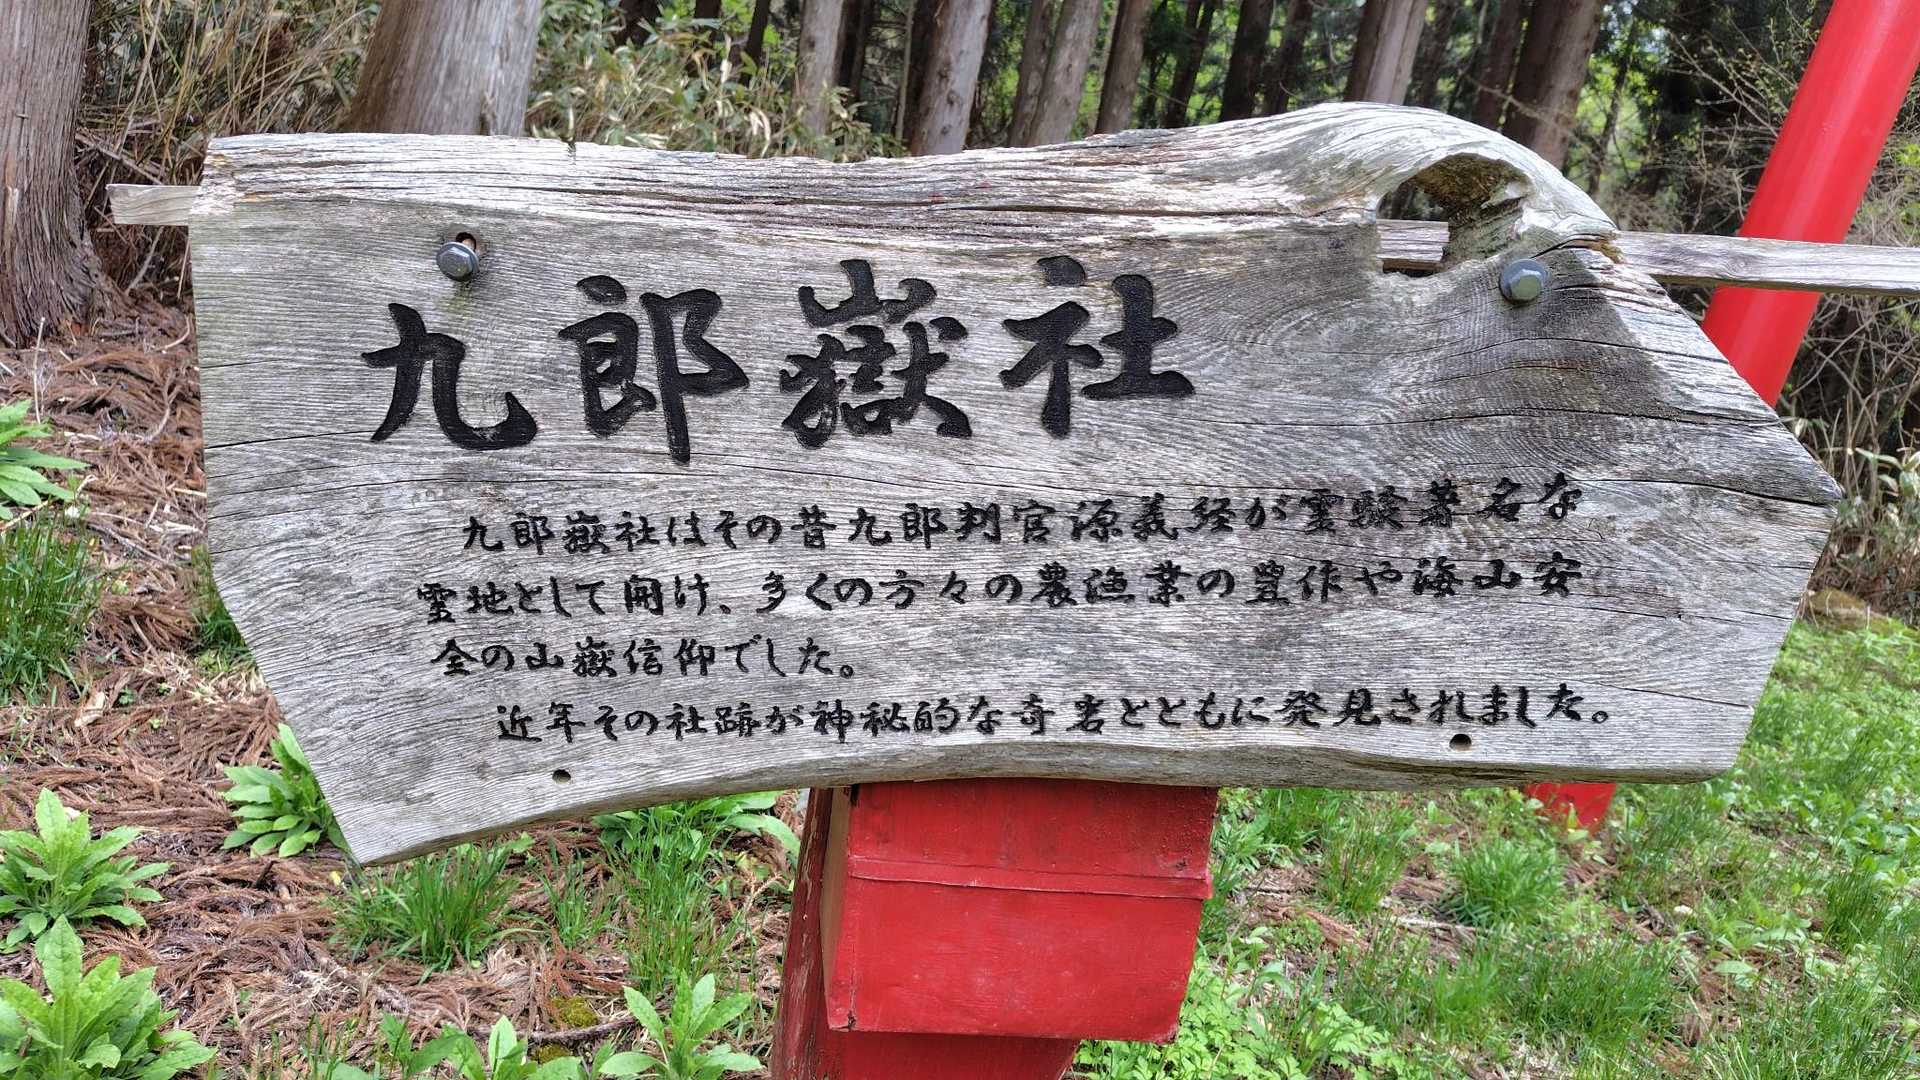 九郎嶽社
九郎嶽社はその昔九郎判官源義経が霊験著名な
霊地として開け、多くの方々の農漁業の豊作や海山安
全の山嶽信仰でした。
近年その社跡が神秘的な奇岩とともに発見されました。